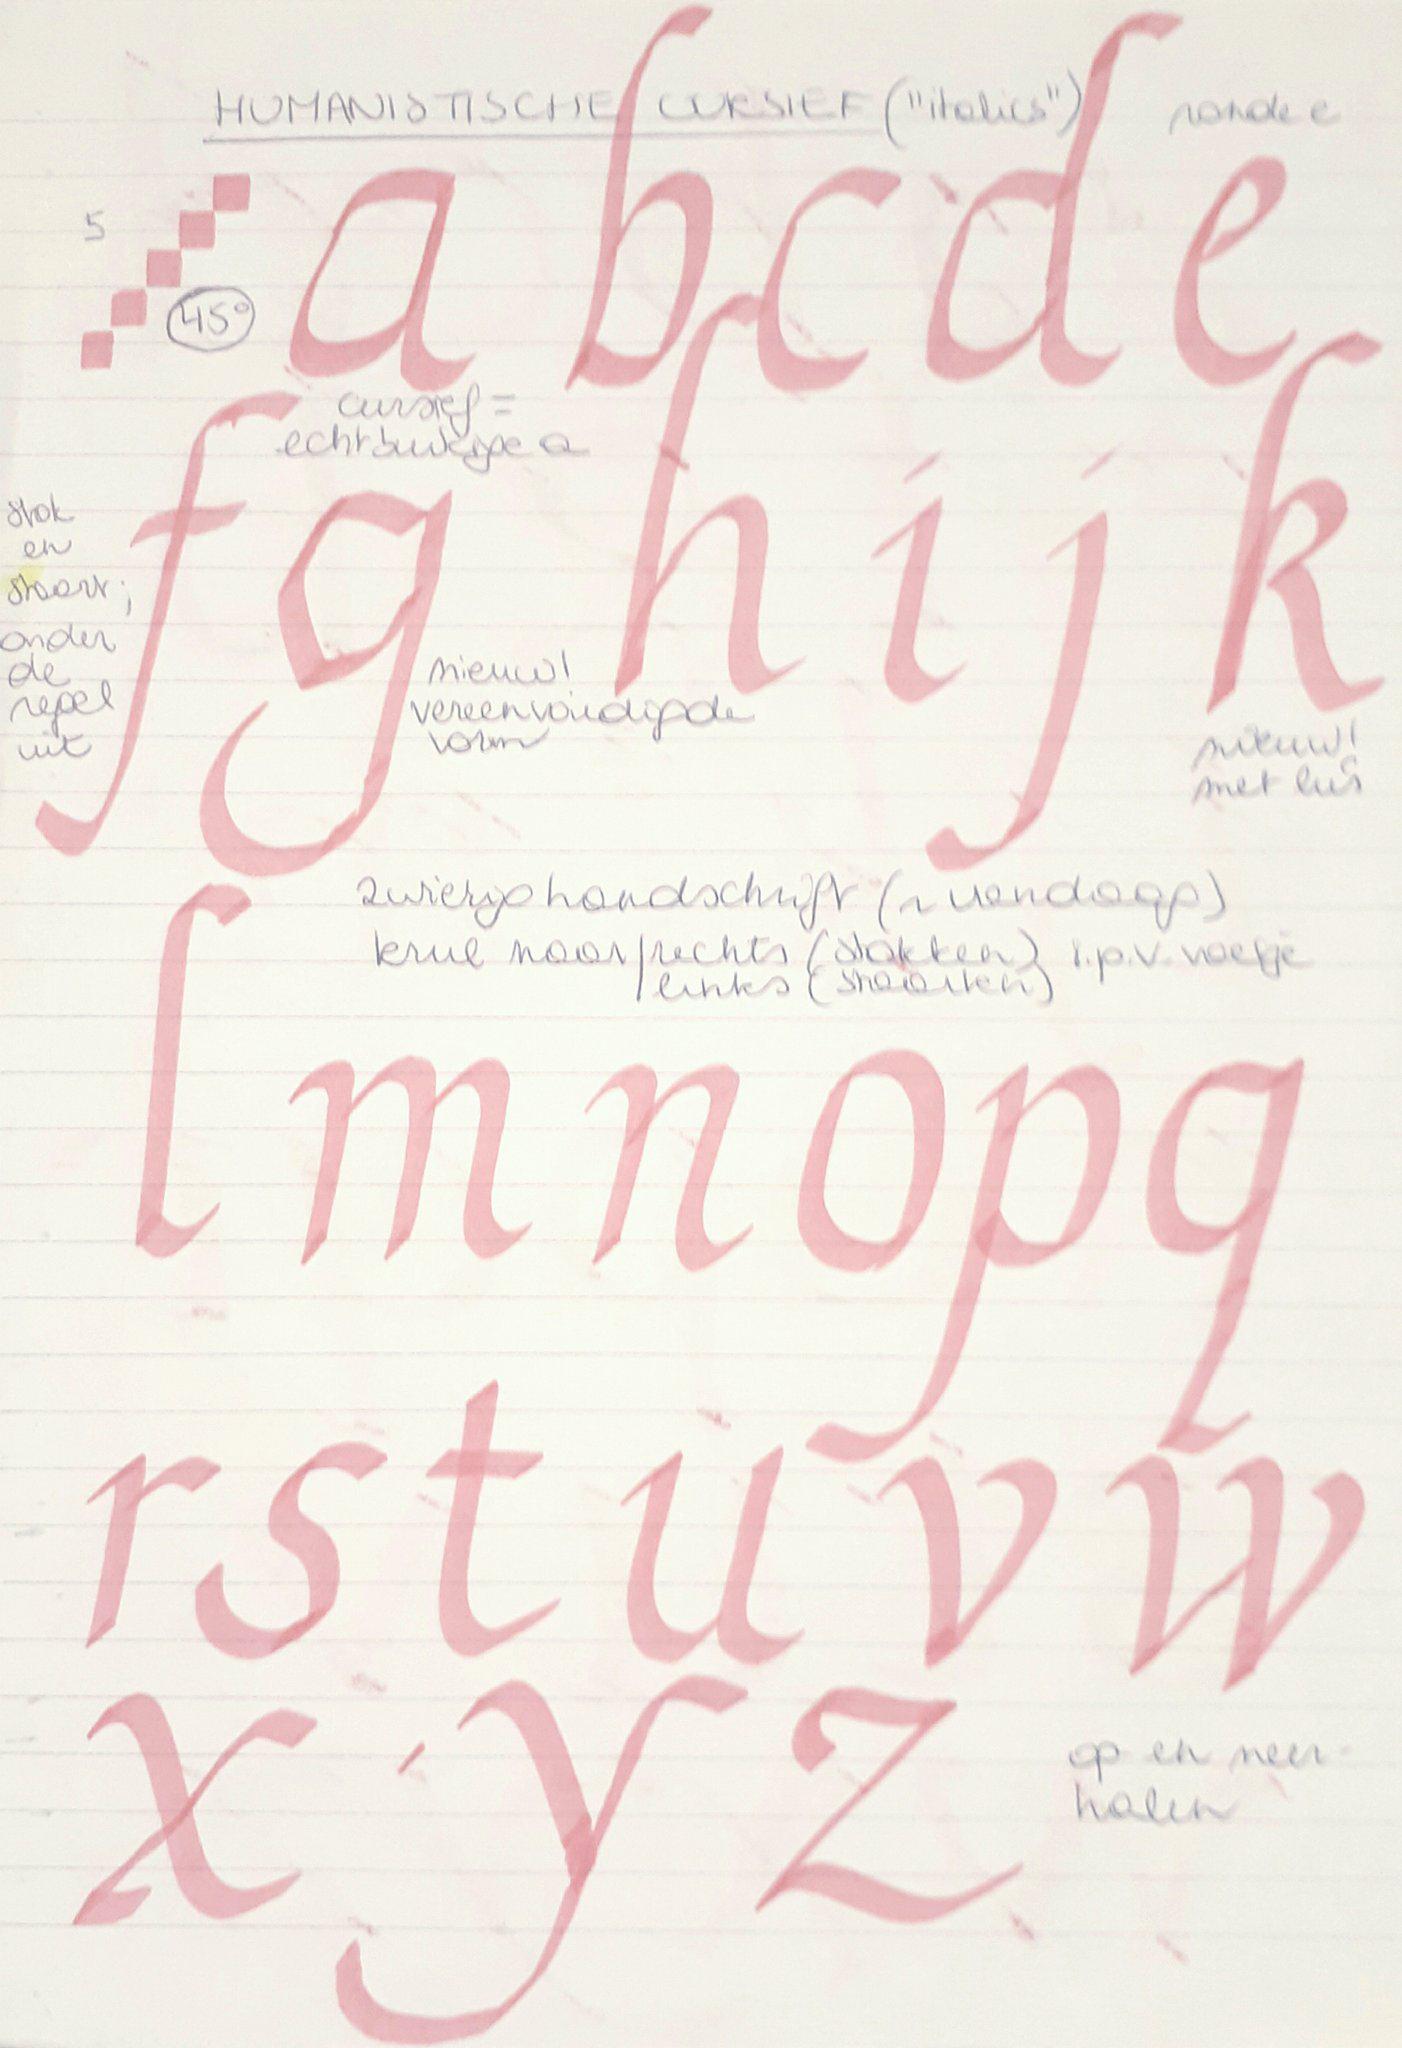 HUMANISTISCHE CURSIEF ("italics")
ronde e
5
45°
a b c d e
cursief =
echt buikige a
f g h i j k
stok
en
staart;
onder
de
regel
uit
nieuw!
vereenvoudigde
vorm
nieuw!
met lus
zwierig handschrift (~ vandaag)
krul naar rechts (stokken) i.p.v. voetje
links (staarten)
l m n o p q
r s t u v w
x y z
op en neer-
halen